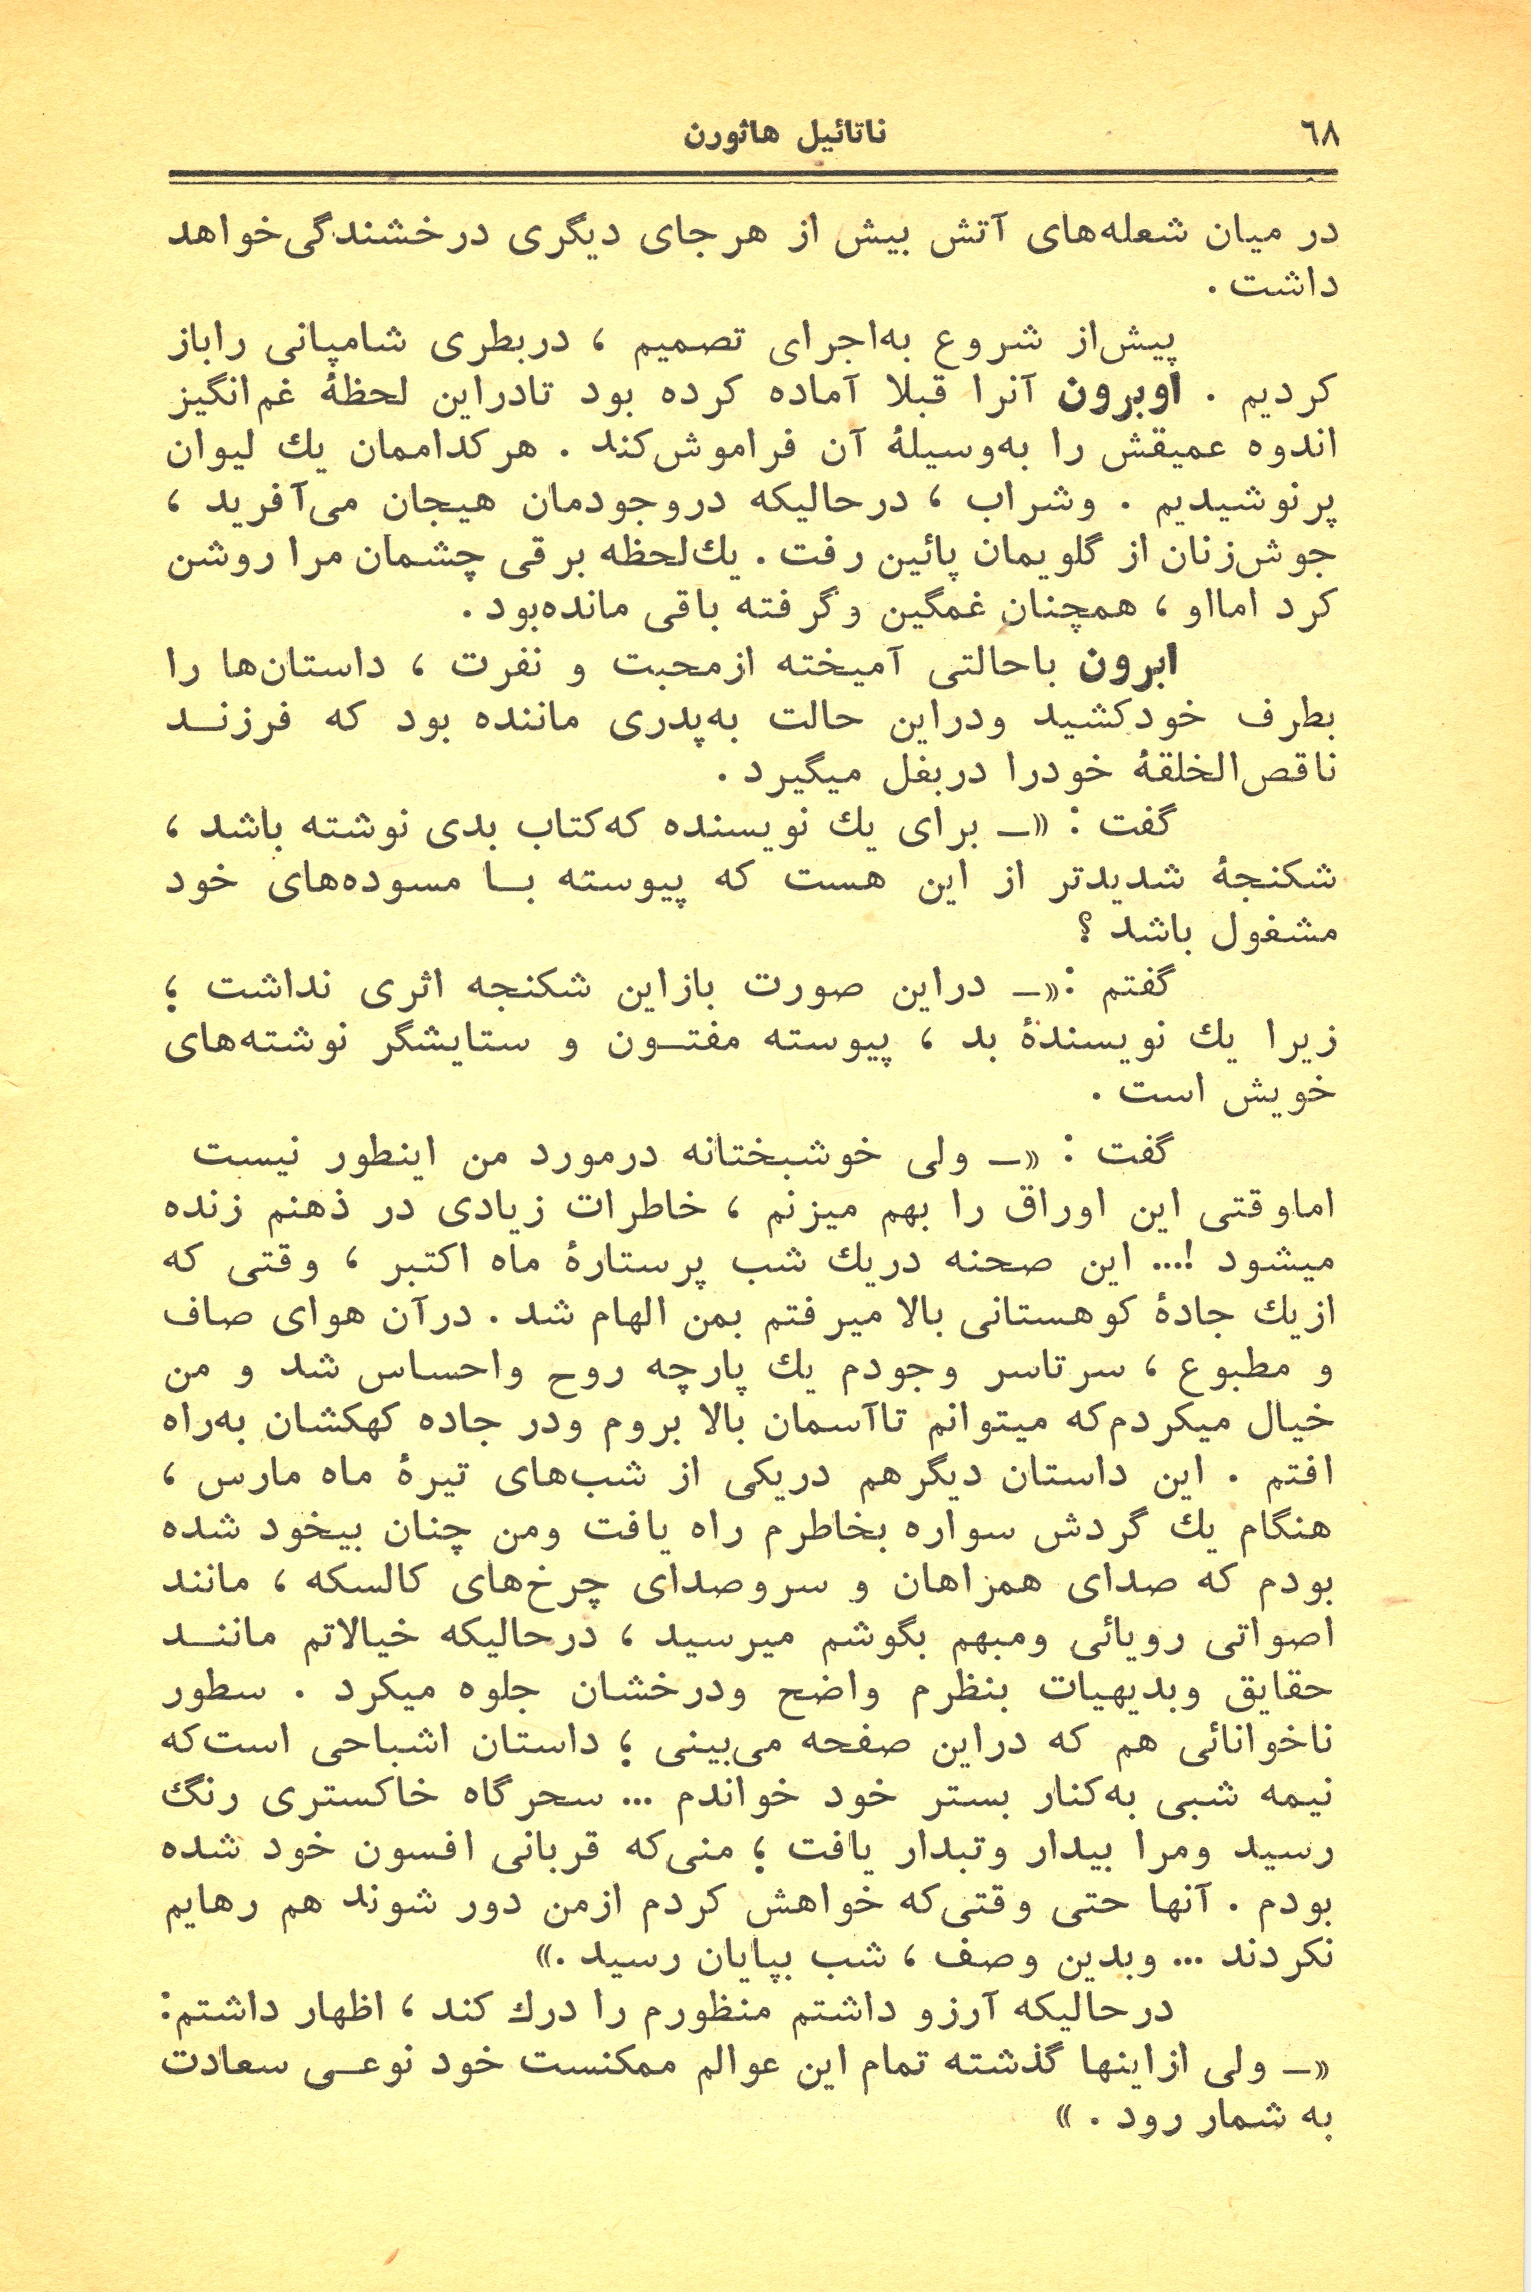 ۶۸
ناتائیل هاثورن
در میان شعله‌های آتش بیش از هرجای دیگری درخشندگی‌خواهد
داشت .
پیش‌از شروع به‌اجرای تصمیم ، دربطری شامپانی راباز
کردیم . اوبرون آنرا قبلا آماده کرده بود تادراین لحظهٔ غم‌انگیز
اندوه عمیقش را به‌وسیلهٔ آن فراموش‌کند . هرکداممان یك لیوان
پرنوشیدیم . وشراب ، درحالیکه دروجودمان هیجان می‌آفرید ،
جوش‌زنان از گلویمان پائین رفت . یك‌لحظه برقی چشمان مرا روشن
کرد امااو ، همچنان غمگین وگرفته باقی مانده‌بود .
ابرون باحالتی آمیخته ازمحبت و نفرت ، داستان‌ها را
بطرف خودکشید ودراین حالت به‌پدری ماننده بود که فرزنــد
ناقص‌الخلقهٔ خودرا دربغل میگیرد .
گفت : «ــ برای یك نویسنده که‌کتاب بدی نوشته باشد ،
شکنجهٔ شدیدتر از این هست که پیوسته بــا مسوده‌های خود
مشغول باشد ؟
گفتم :«ــ دراین صورت بازاین شکنجه اثری نداشت ؛
زیرا یك نویسندهٔ بد ، پیوسته مفتــون و ستایشگر نوشته‌های
خویش است .
گفت : «ــ ولی خوشبختانه درمورد من اینطور نیست
اماوقتی این اوراق را بهم میزنم ، خاطرات زیادی در ذهنم زنده
میشود !... این صحنه دریك شب پرستارهٔ ماه اکتبر ، وقتی که
ازیك جادهٔ کوهستانی بالا میرفتم بمن الهام شد . درآن هوای صاف
و مطبوع ، سرتاسر وجودم یك پارچه روح واحساس شد و من
خیال میکردم‌که میتوانم تاآسمان بالا بروم ودر جاده کهکشان به‌راه
افتم . این داستان دیگرهم دریکی از شب‌های تیرهٔ ماه مارس ،
هنگام یك گردش سواره بخاطرم راه یافت ومن چنان بیخود شده
بودم که صدای همزاهان و سروصدای چرخ‌های کالسکه ، مانند
اصواتی رویائی ومبهم بگوشم میرسید ، درحالیکه خیالاتم ماننــد
حقایق وبدیهیات بنظرم واضح ودرخشان جلوه میکرد . سطور
ناخوانائی هم که دراین صفحه می‌بینی ؛ داستان اشباحی است‌که
نیمه شبی به‌کنار بستر خود خواندم ... سحرگاه خاکستری رنگ
رسید ومرا بیدار وتبدار یافت ؛ منی‌که قربانی افسون خود شده
بودم . آنها حتی وقتی‌که خواهش کردم ازمن دور شوند هم رهایم
نکردند ... وبدین وصف ، شب بپایان رسید .»
درحالیکه آرزو داشتم منظورم را درك کند ، اظهار داشتم:
«ــ ولی ازاینها گذشته تمام این عوالم ممکنست خود نوعــی سعادت
به شمار رود . »